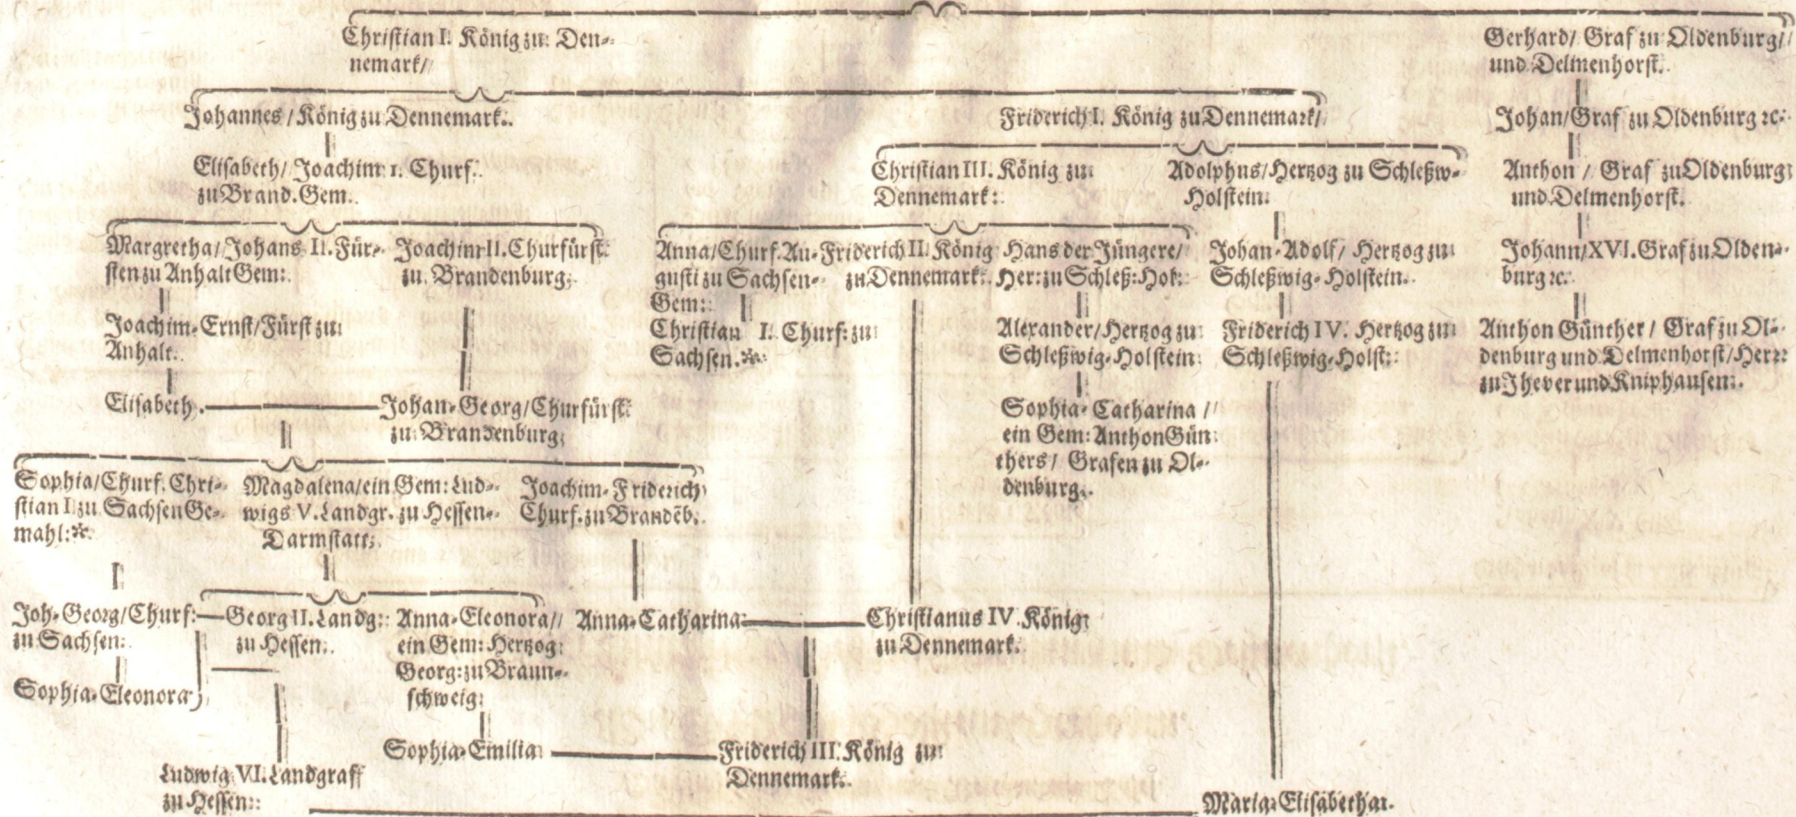 Christian I. König zu Den-
nemark/
Gerhard/ Graf zu Oldenburg/
und Delmenhorst.
Johannes/König zu Dennemark.
Friderich I. König zu Dennemark/
Johan/Graf zu Oldenburg ꝛc.
Elisabeth/ Joachim 1. Churf.
zu Brand. Gem.
Christian III. König zu
Dennemark:
Adolphus/Hertzog zu Schleßw-
Holstein.
Anthon / Graf zu Oldenburg
und Delmenhorst.
Margretha/Johans II. Für-
sten zu Anhalt Gem:
Joachim II. Churfürst
zu Brandenburg.
Anna/Churf. Au-
gusti zu Sachsen
Gem:
Friderich II. König
zu Dennemark.
Hans der Jüngere/
Her: zu Schleß: Hol:
Johan-Adolf/ Hertzog zu
Schleßwig-Holstein.
Johann/XVI. Graf zu Olden-
burg ꝛc.
Joachim-Ernst/Fürst zu
Anhalt.
Christian I. Churf: zu
Sachsen.*
Alexander/Hertzog zu
Schleßwig-Holstein
Friderich IV. Hertzog zu
Schleßwig-Holst:
Anthon Günther / Graf zu Ol-
denburg und Delmenhorst/Herr
zu Jhever und Kniphausen.
Elisabeth.
Johan-Georg/Churfürst
zu Brandenburg.
Sophia-Catharina /
ein Gem: Anthon Gün
thers/ Grafen zu Ol-
denburg.
Sophia/Churf. Chri-
stian I. zu Sachsen Ge-
mahl:*
Magdalena/ein Gem: Lud-
wigs V. Landgr. zu Hessen-
Darmstatt.
Joachim-Friderich
Churf. zu Brandēb.
Joh-Georg/Churf:
zu Sachsen.
Georg II. Landg:
zu Hessen.
Anna-Eleonora/
ein Gem: Hertzog
Georg: zu Braun-
schweig.
Anna-Catharina
Christianus IV. König
zu Dennemark.
Sophia-Eleonora
Sophia-Emilia
Friderich III. König zu
Dennemark.
Ludwig VI. Landgraff
zu Hessen:
Maria-Elisabetha.